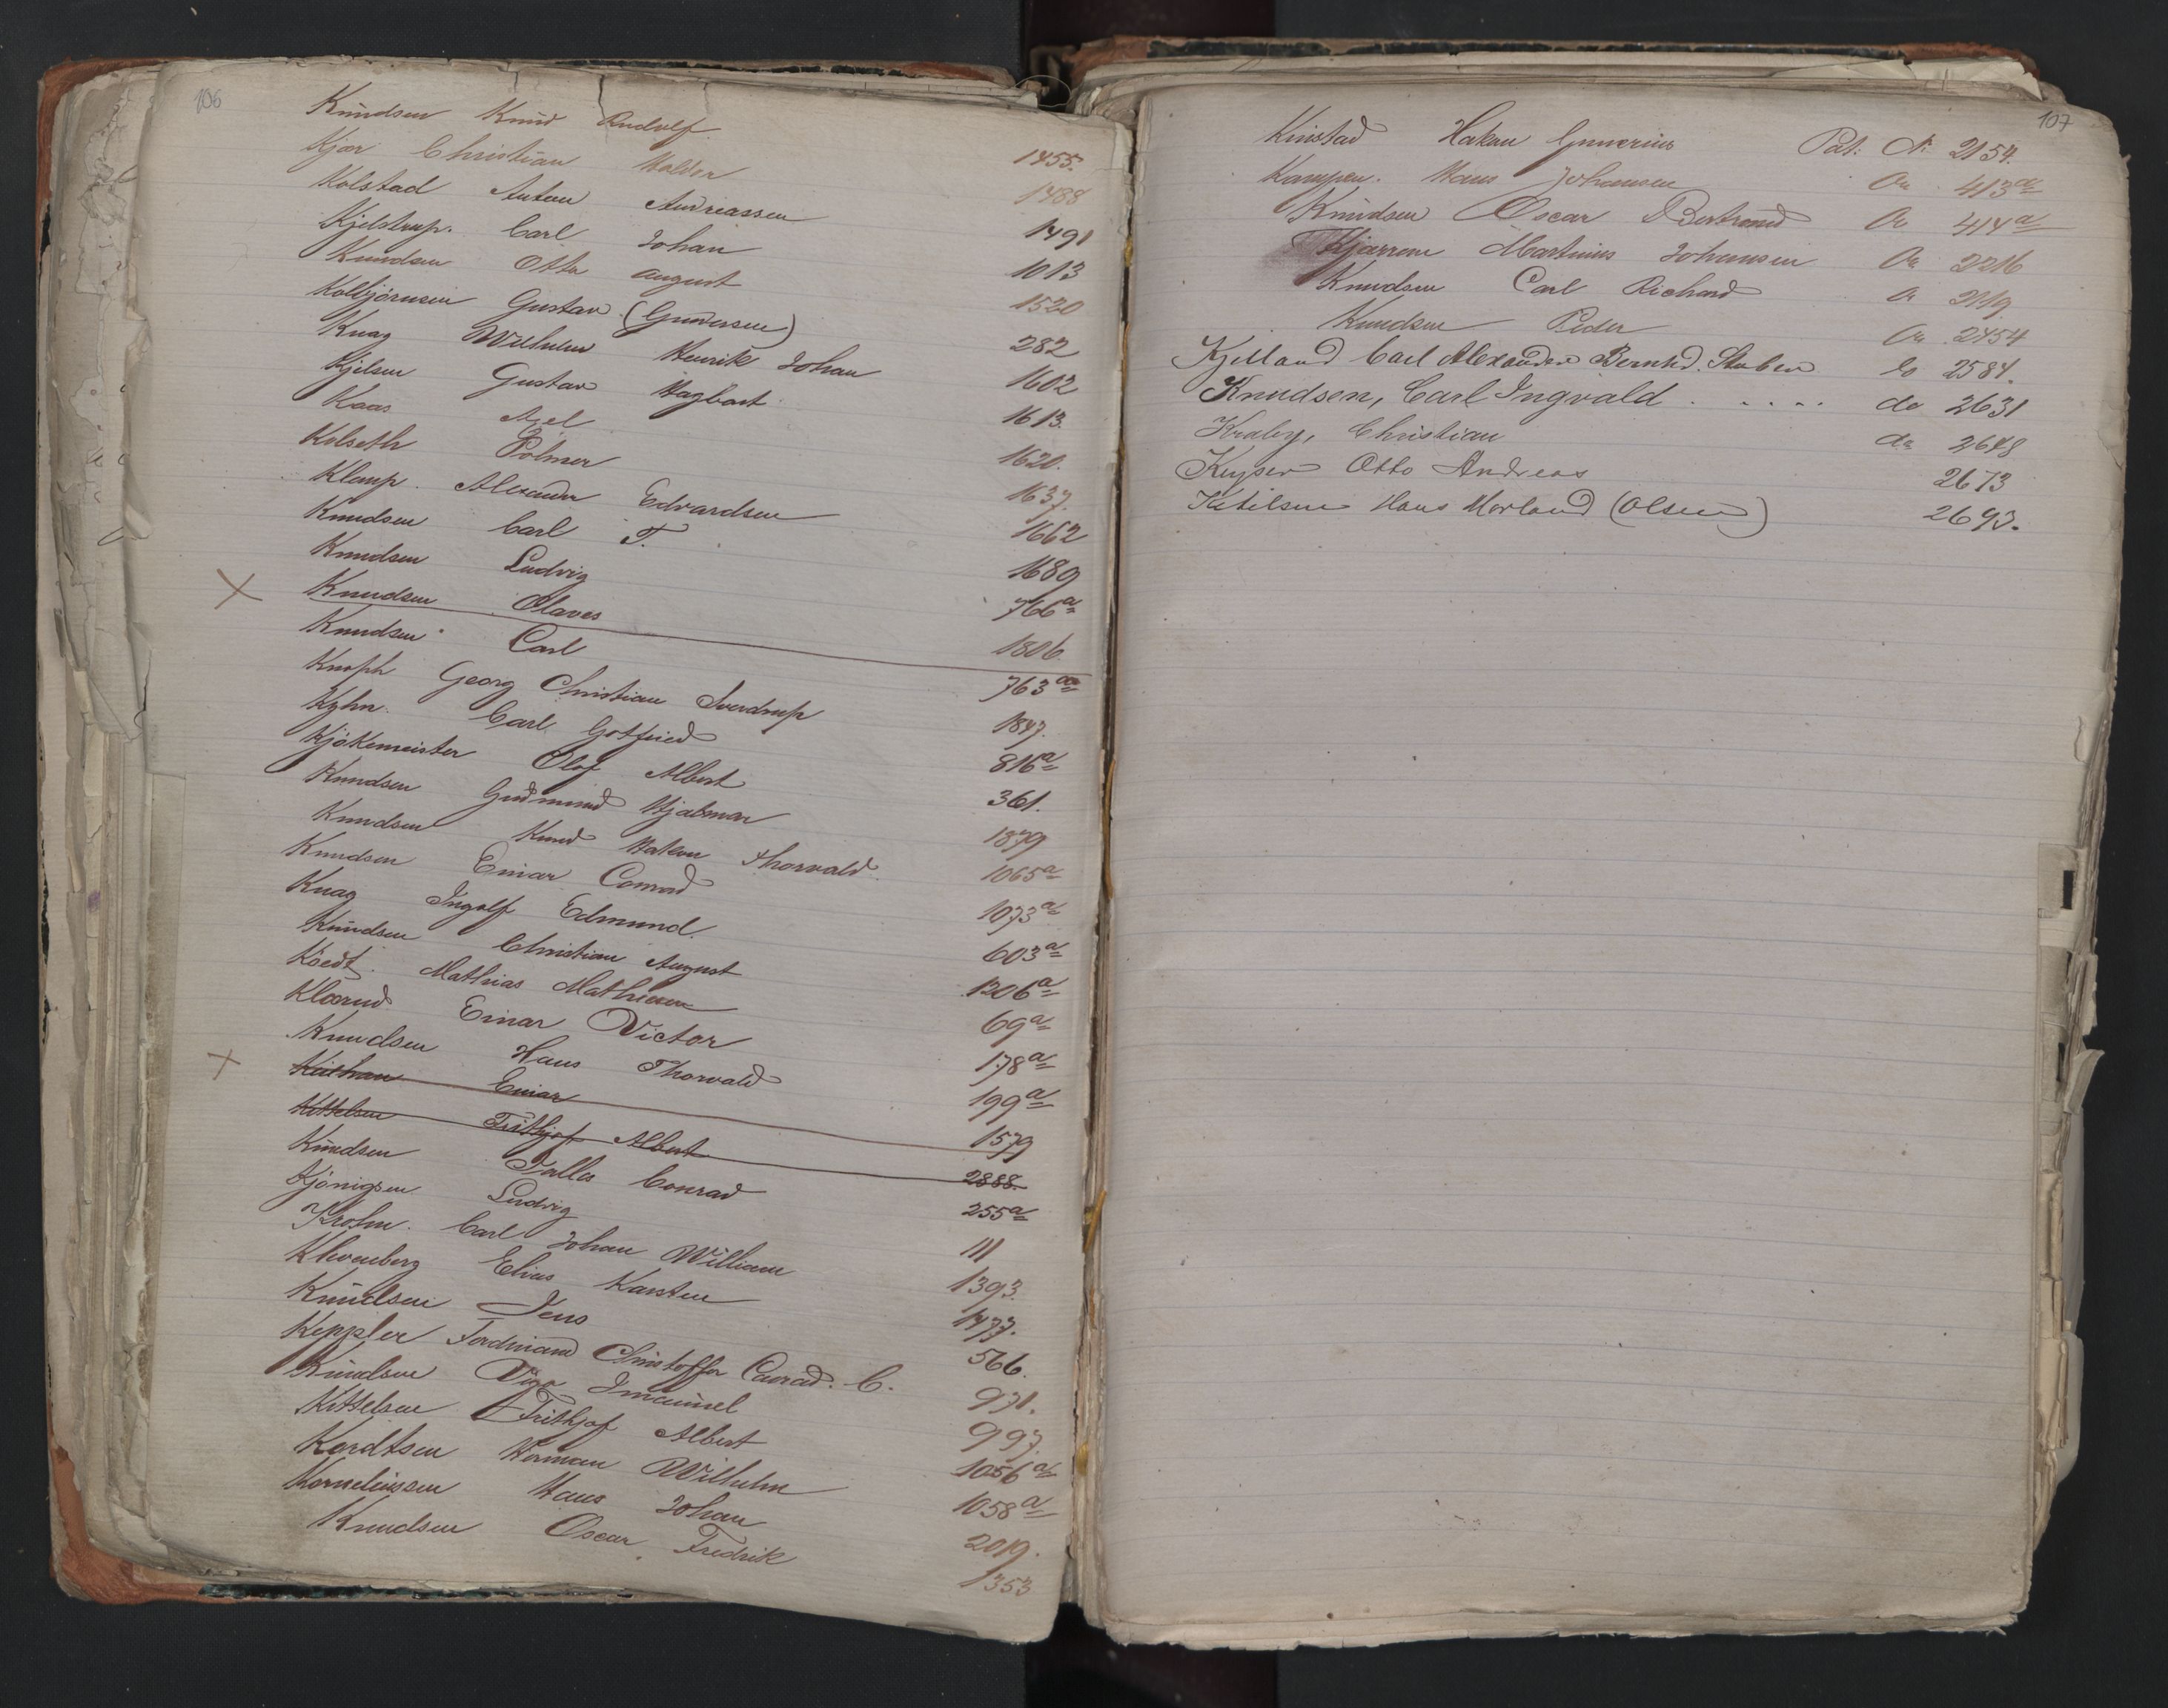 106
Knudsen Knud Rudolf 1455.
Kjær Christian Halvor 1488
Kolstad Anton Andreassen 1491
Kjelstrup. Carl Johan 1013
Knudsen Otto August 1520
Kolbjörnsen Gustav (Gundersen) 282
Knag Wilhelm Henrik Johan 1602
Kjelsen Gustav Hagbart 1613.
Kaas Axel 1620.
Kolseth Polmer 1637.
Klemp. Alexander Edvardsen 1662
Knudsen Carl T. 1689
Knudsen Ludvig 766a
X Knudsen Olaves 1806
Knudsen Carl 763aa
Knoph Georg Christian Sverdrup 1847.
Kyhn. Carl Gotfried 816a
Kjökemeister Olaf Albert 361.
Knudsen Gudmund Hjalmar 1879
Knudsen Knud Hakon Thorvald 1065a
Knudsen Einar Conrad 1073a
Knag Ingolf Edmund. 603a
Knudsen Christian August 1206a
Köedt. Mathias Mathiesen 69a
Klorud Einar Victor 178a
Knudsen Hans Thorvald 199a
+ Einar 1579
Kittelsen Frithjof Albert 2888.
Knudsen Falles Conrad 255a
Kjönigsen Ludvig 111
Krohn. Carl Johan William 1393.
Klevenberg Elias Karsten 1477.
Knudsen Jens 566.
Keppler Ferdinand Christoffer Conrad. C. 971.
Knudsen Vigo Imanuel 997.
Kittelsen Frithjof Albert 1056a
Kordtsen Herman Wilhelm 1058a
Korneliussen Hans Johan 2019.
Knudsen Oscar Fredrik 1353
107
Kinstad Hakan Gunerius Pat: N. 2154.
Kampen. Hans Johansen Do 413a
Knudsen Oscar Bertrand Do 414a
Kjærren Martinius Johansen Do 2216
Knudsen Carl Richard Do 2119
Knudsen Peder Do 2454
Kjelland Carl Alexander Bernhd. Stuben do 2584.
Knudsen, Carl Ingvald . . . . . do 2631
Kraby, Christian do 2648
Keyser Otto Andreas 2673
Ketilsen Hans Morland (Olsen) 2693.